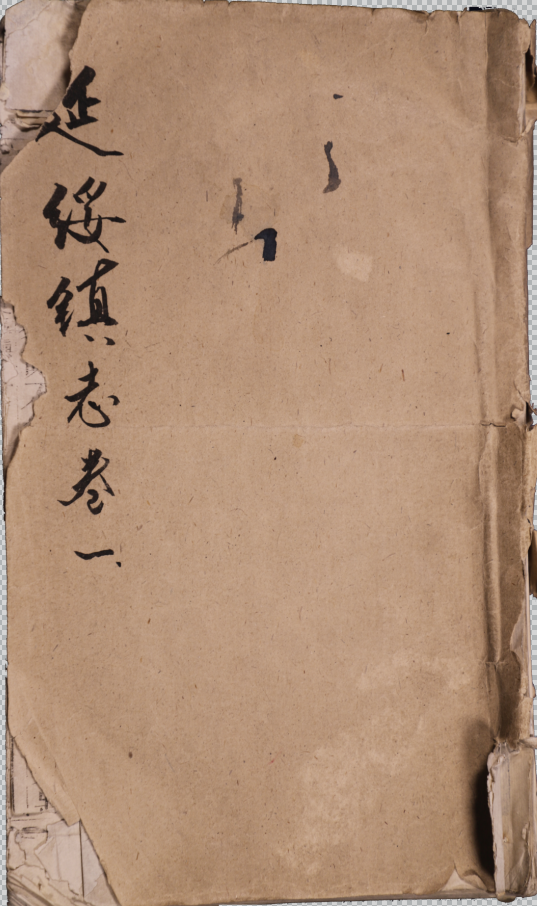 延綏鎮志卷一